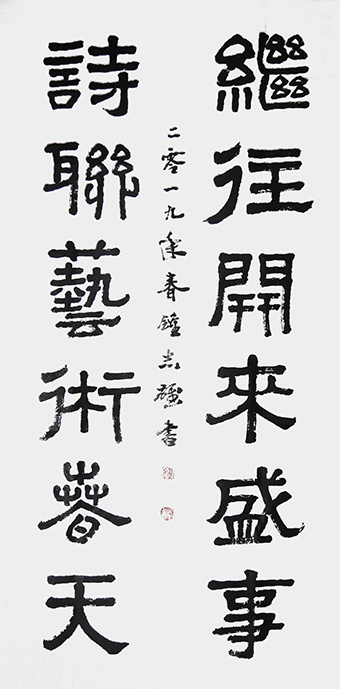 繼往開來盛事
詩聯藝術春天
二零一九年春鐘志強書